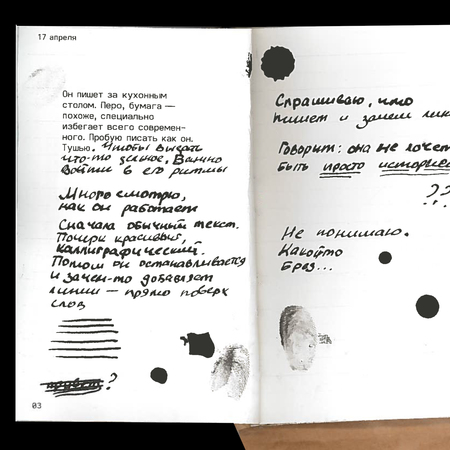 17 апреля
Он пишет за кухонным
столом. Перо, бумага —
похоже, специально
избегает всего современ-
ного. Пробую писать как он.
Тушью. Чтобы видеть
что-то ценное. Важно
войти в его ритмы
Много смотрю,
как он работает
Сначала обычный текст.
Почерк красивый,
каллиграфический.
Потом он останавливается
и зачем-то добавляет
линии — прямо поверх
слов
?
03
Спрашиваю, что
пишет и зачем лини
Говорит: она не хочет
быть просто историей
??
?..
Не понимаю.
Какой-то
бред...